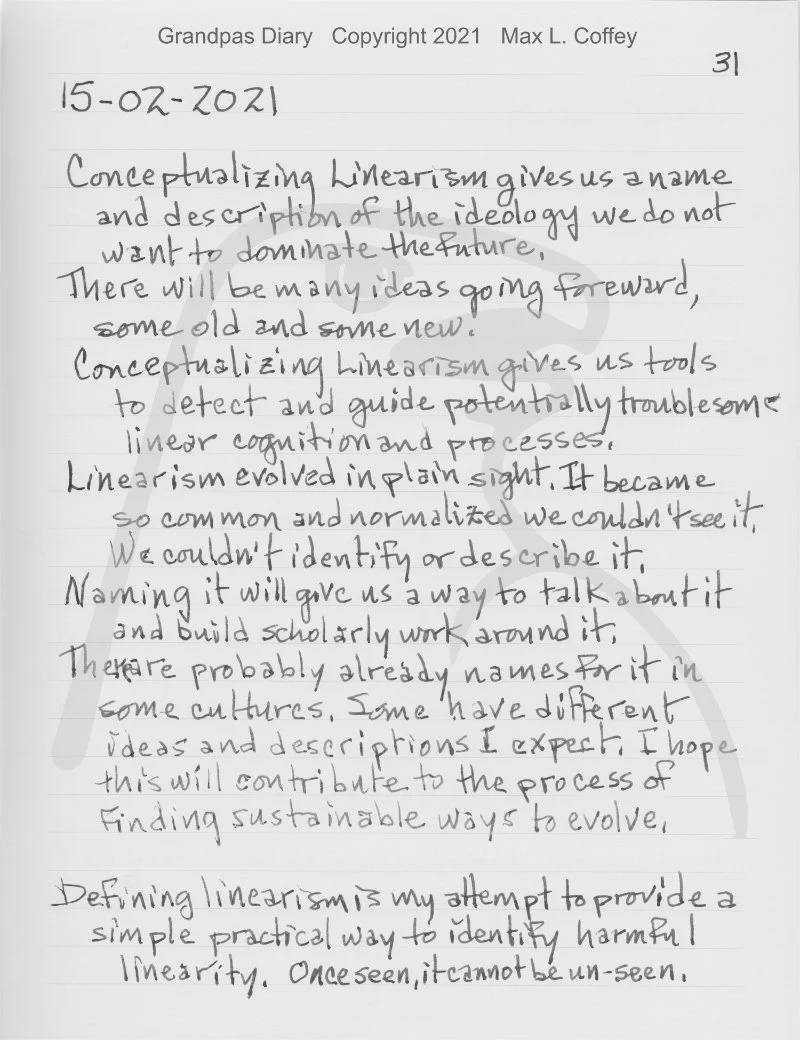 Grandpas Diary Copyright 2021 Max L. Coffey
31
15-02-2021
Conceptualizing Linearism gives us a name
and description of the ideology we do not
want to dominate the future.
There will be many ideas going foreward,
some old and some new.
Conceptualizing Linearism gives us tools
to detect and guide potentially troublesome
linear cognition and processes.
Linearism evolved in plain sight. It became
so common and normalized we couldn't see it.
We couldn't identify or describe it.
Naming it will give us a way to talk about it
and build scholarly work around it.
There are probably already names for it in
some cultures. Some have different
ideas and descriptions I expect. I hope
this will contribute to the process of
finding sustainable ways to evolve.
Defining linearism is my attempt to provide a
simple practical way to identify harmful
linearity. Once seen, it cannot be un-seen.